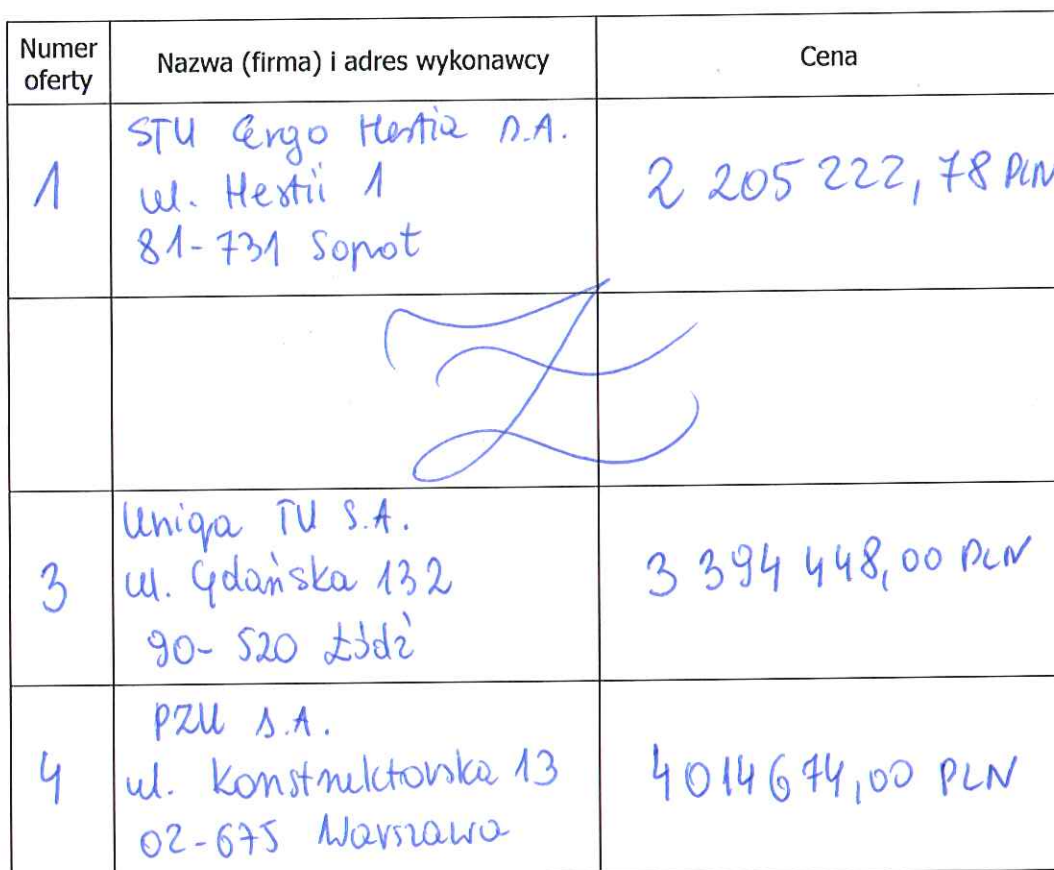 Numer oferty
Nazwa (firma) i adres wykonawcy
Cena
1
STU Ergo Hestia S.A.
ul. Hestii 1
81-731 Sopot
2 205 222,78 PLN
3
Uniqa TU S.A.
ul. Gdańska 132
90-520 Łódź
3 394 448,00 PLN
4
PZU S.A.
ul. Konstruktorska 13
02-675 Warszawa
4 014 674,00 PLN